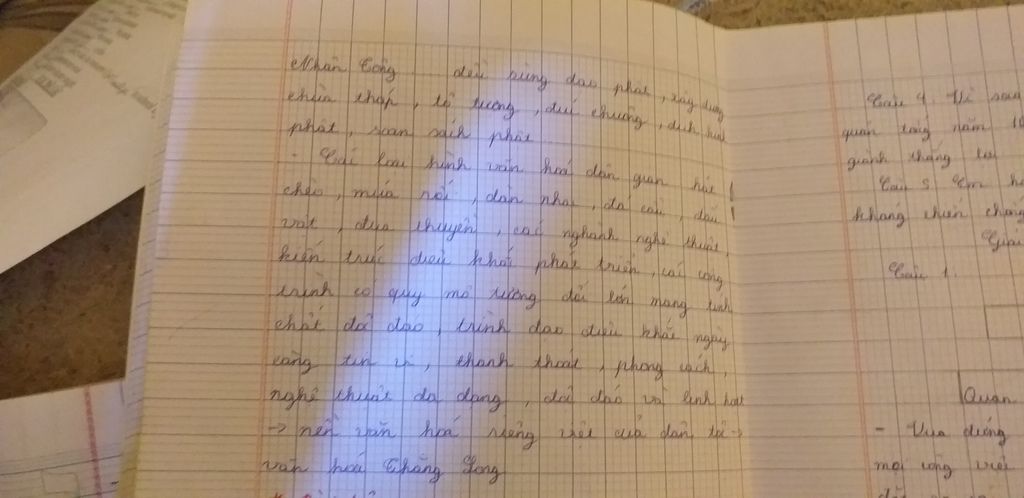 Nhân Tông đều sùng đạo phật, xây dựng
chùa tháp, tô tượng, đúc chuông, dịch kinh
phật, soạn sách phật
- Các loại hình văn hoá dân gian hát
chèo, múa rối, dàn nhạc, đá cầu, đấu
vật, đua thuyền, các nghành nghệ thuật,
kiến trúc điêu khắc phát triển, các công
trình có quy mô tương đối lớn mang tính
chất độc đáo, trình độ điêu khắc ngày
càng tin vi, thanh thoát, phong cách,
nghệ thuật đa dạng, độc đáo và linh hoạt
→ nền văn hoá riêng việt của dân tộc →
văn hoá Thăng Long
Câu 4: Vì sao
quân tống năm
giành thắng lợi
Câu 5 Em
kháng chiến chống
Giải
Câu 1.
Quan
- Vua đứng
mọi công việc